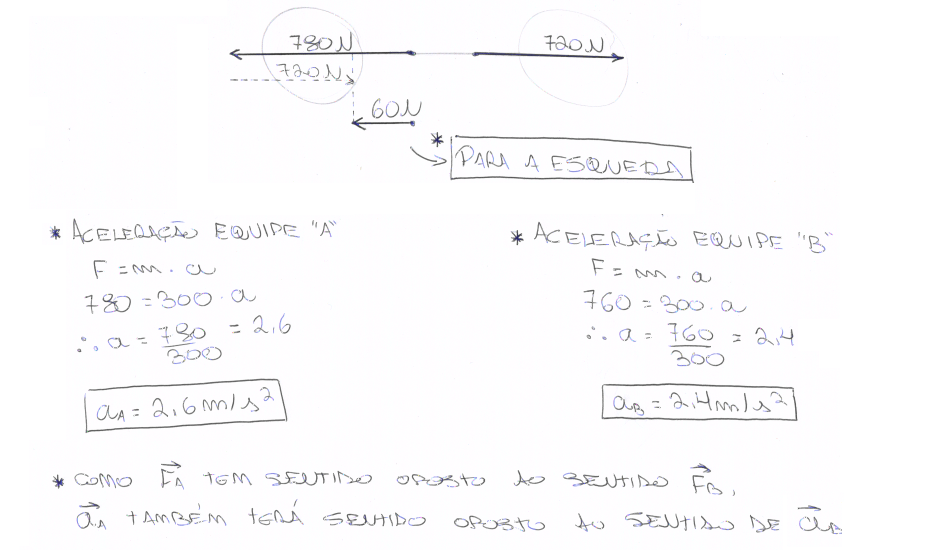 780N
720N
720N
60N
*
PARA A ESQUEDA
* ACELERAÇÃO EQUIPE "A"
F = m . a
780 = 300 . a
∴ a = 780/300 = 2,6
aA = 2,6 m/s²
* ACELERAÇÃO EQUIPE "B"
F = m . a
760 = 300 . a
∴ a = 760/300 = 2,4
aB = 2,4 m/s²
* COMO F⃗A TEM SENTIDO OPOSTO AO SENTIDO F⃗B,
a⃗A TAMBÉM TERÁ SENTIDO OPOSTO AO SENTIDO DE a⃗B